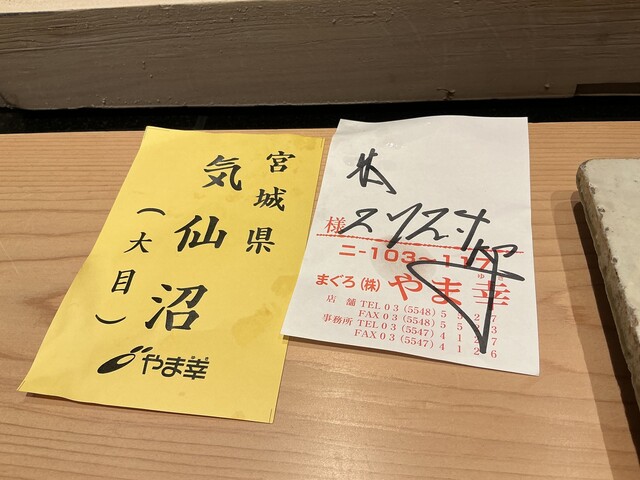 宮城県
気仙沼
(大目)
やま幸
様
ニ-103~117
まぐろ(株)やま幸
店舗 TEL 03(5548)5
FAX 03(5548)5
事務所 TEL 03(5547)41
FAX 03(5547)4126